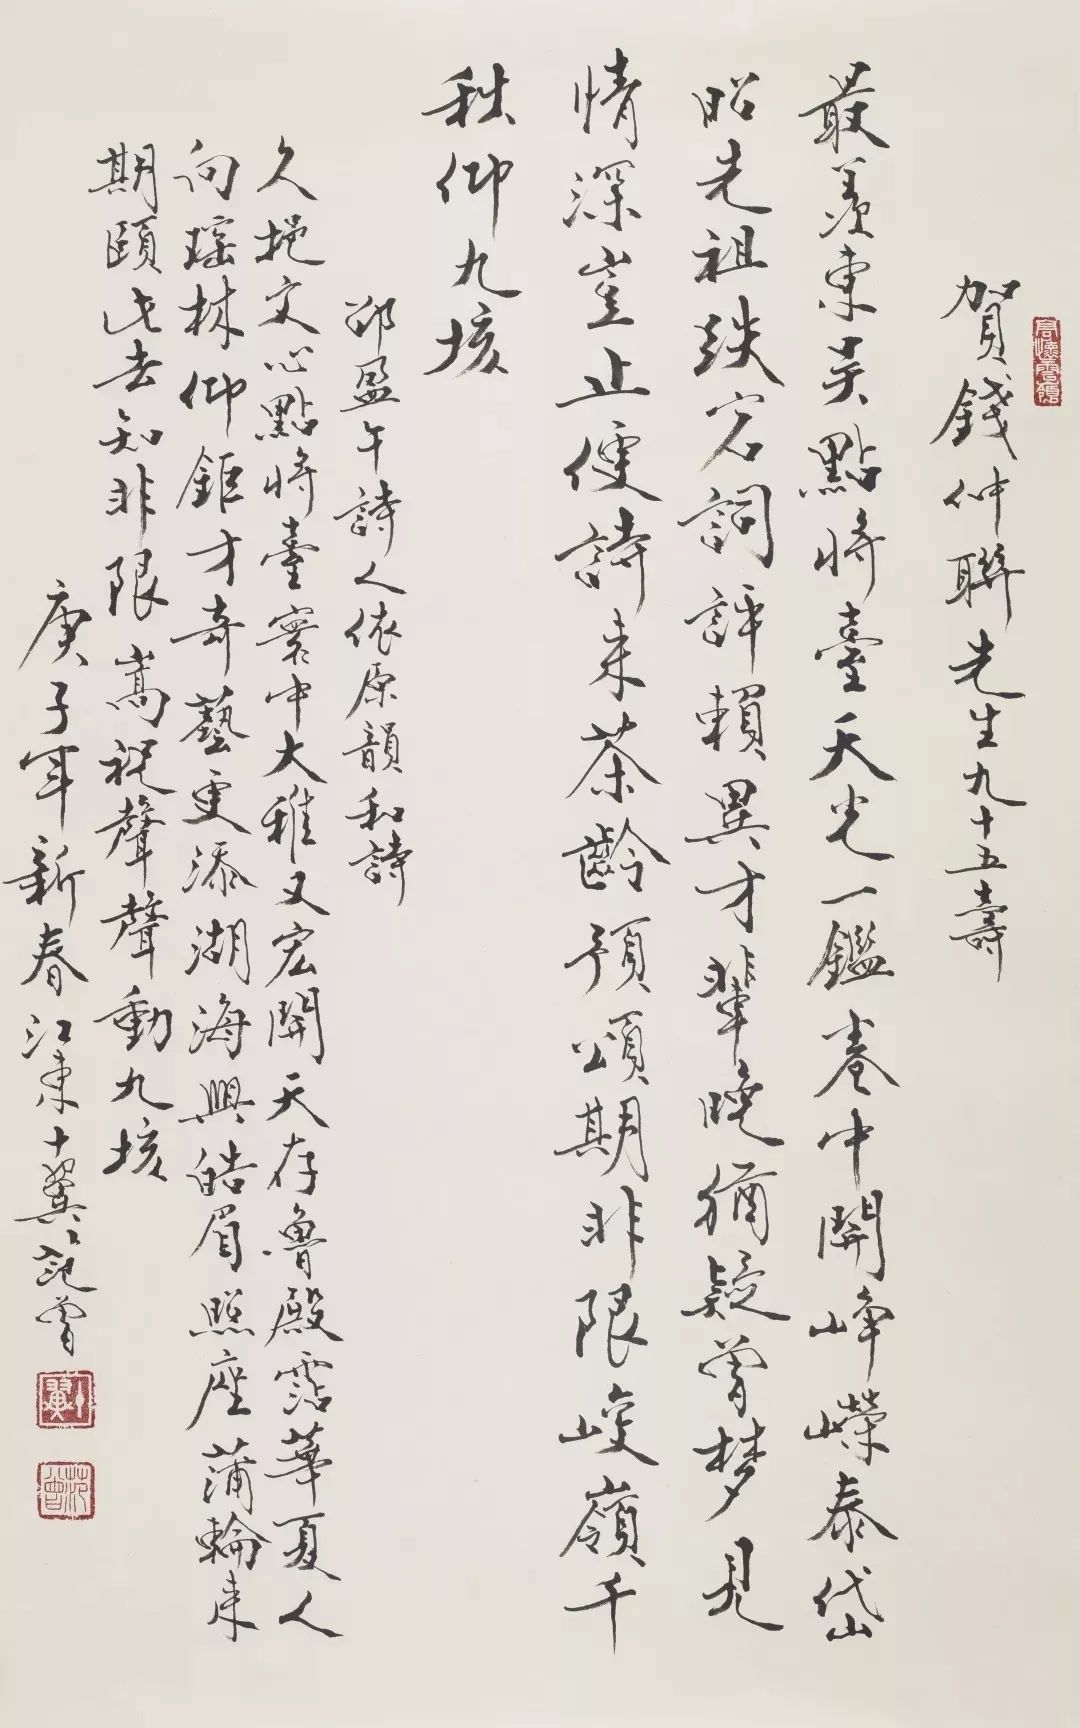 賀錢仲聯先生九十五壽
最羨東吳點將臺天光一鑑卷中開峥嶸泰岱
昭先祖跌宕詞評賴異才輩晚猶疑曾梦見
情深豈止便詩来茶齡預頌期非限峻嶺千
秩仰九垓
邵盈午詩人依原韻和詩
久挹文心點將臺寰中大雅又宏開天存魯殿霑華夏人
向瑶林仰鉅才奇藝更添湖海興皓眉照座蒲輪来
期頤此去知非限嵩祝聲聲動九垓
庚子年新春江東十翼范曾
十翼
范曾